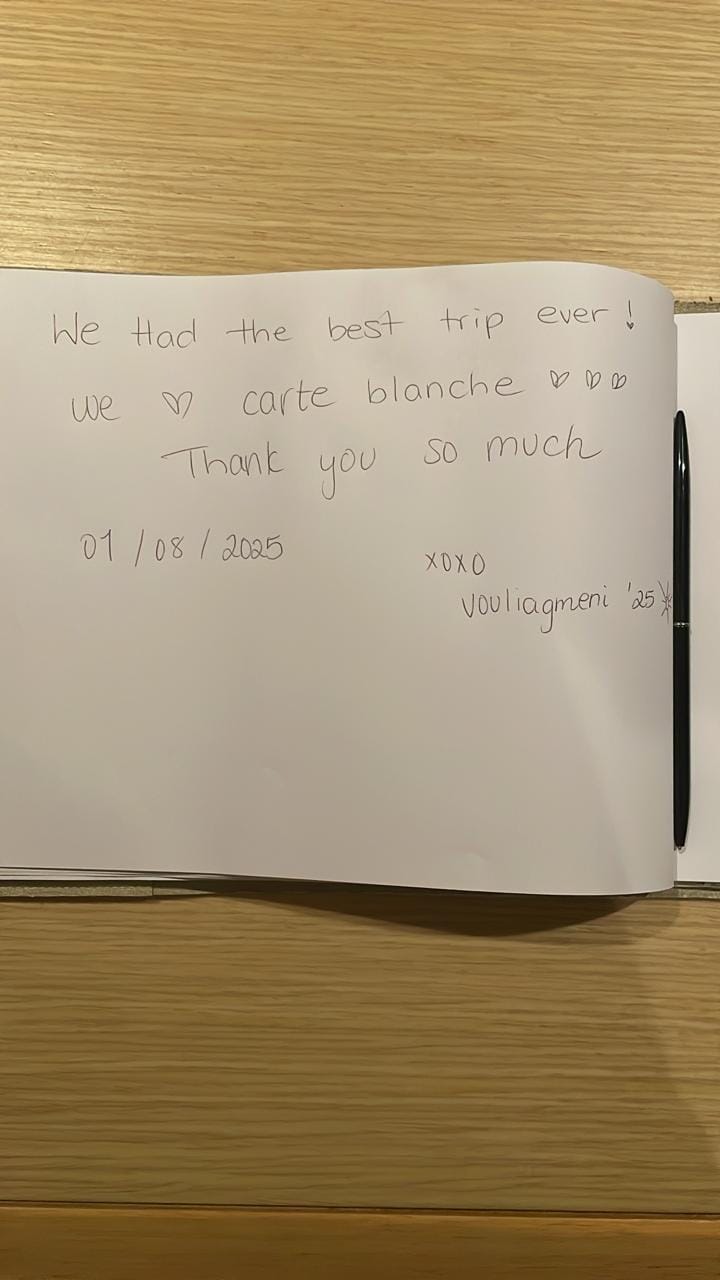 We Had the best trip ever!
we ♡ carte blanche ♡♡♡
Thank you so much
01/08/2025
xoxo
vouliagmeni '25